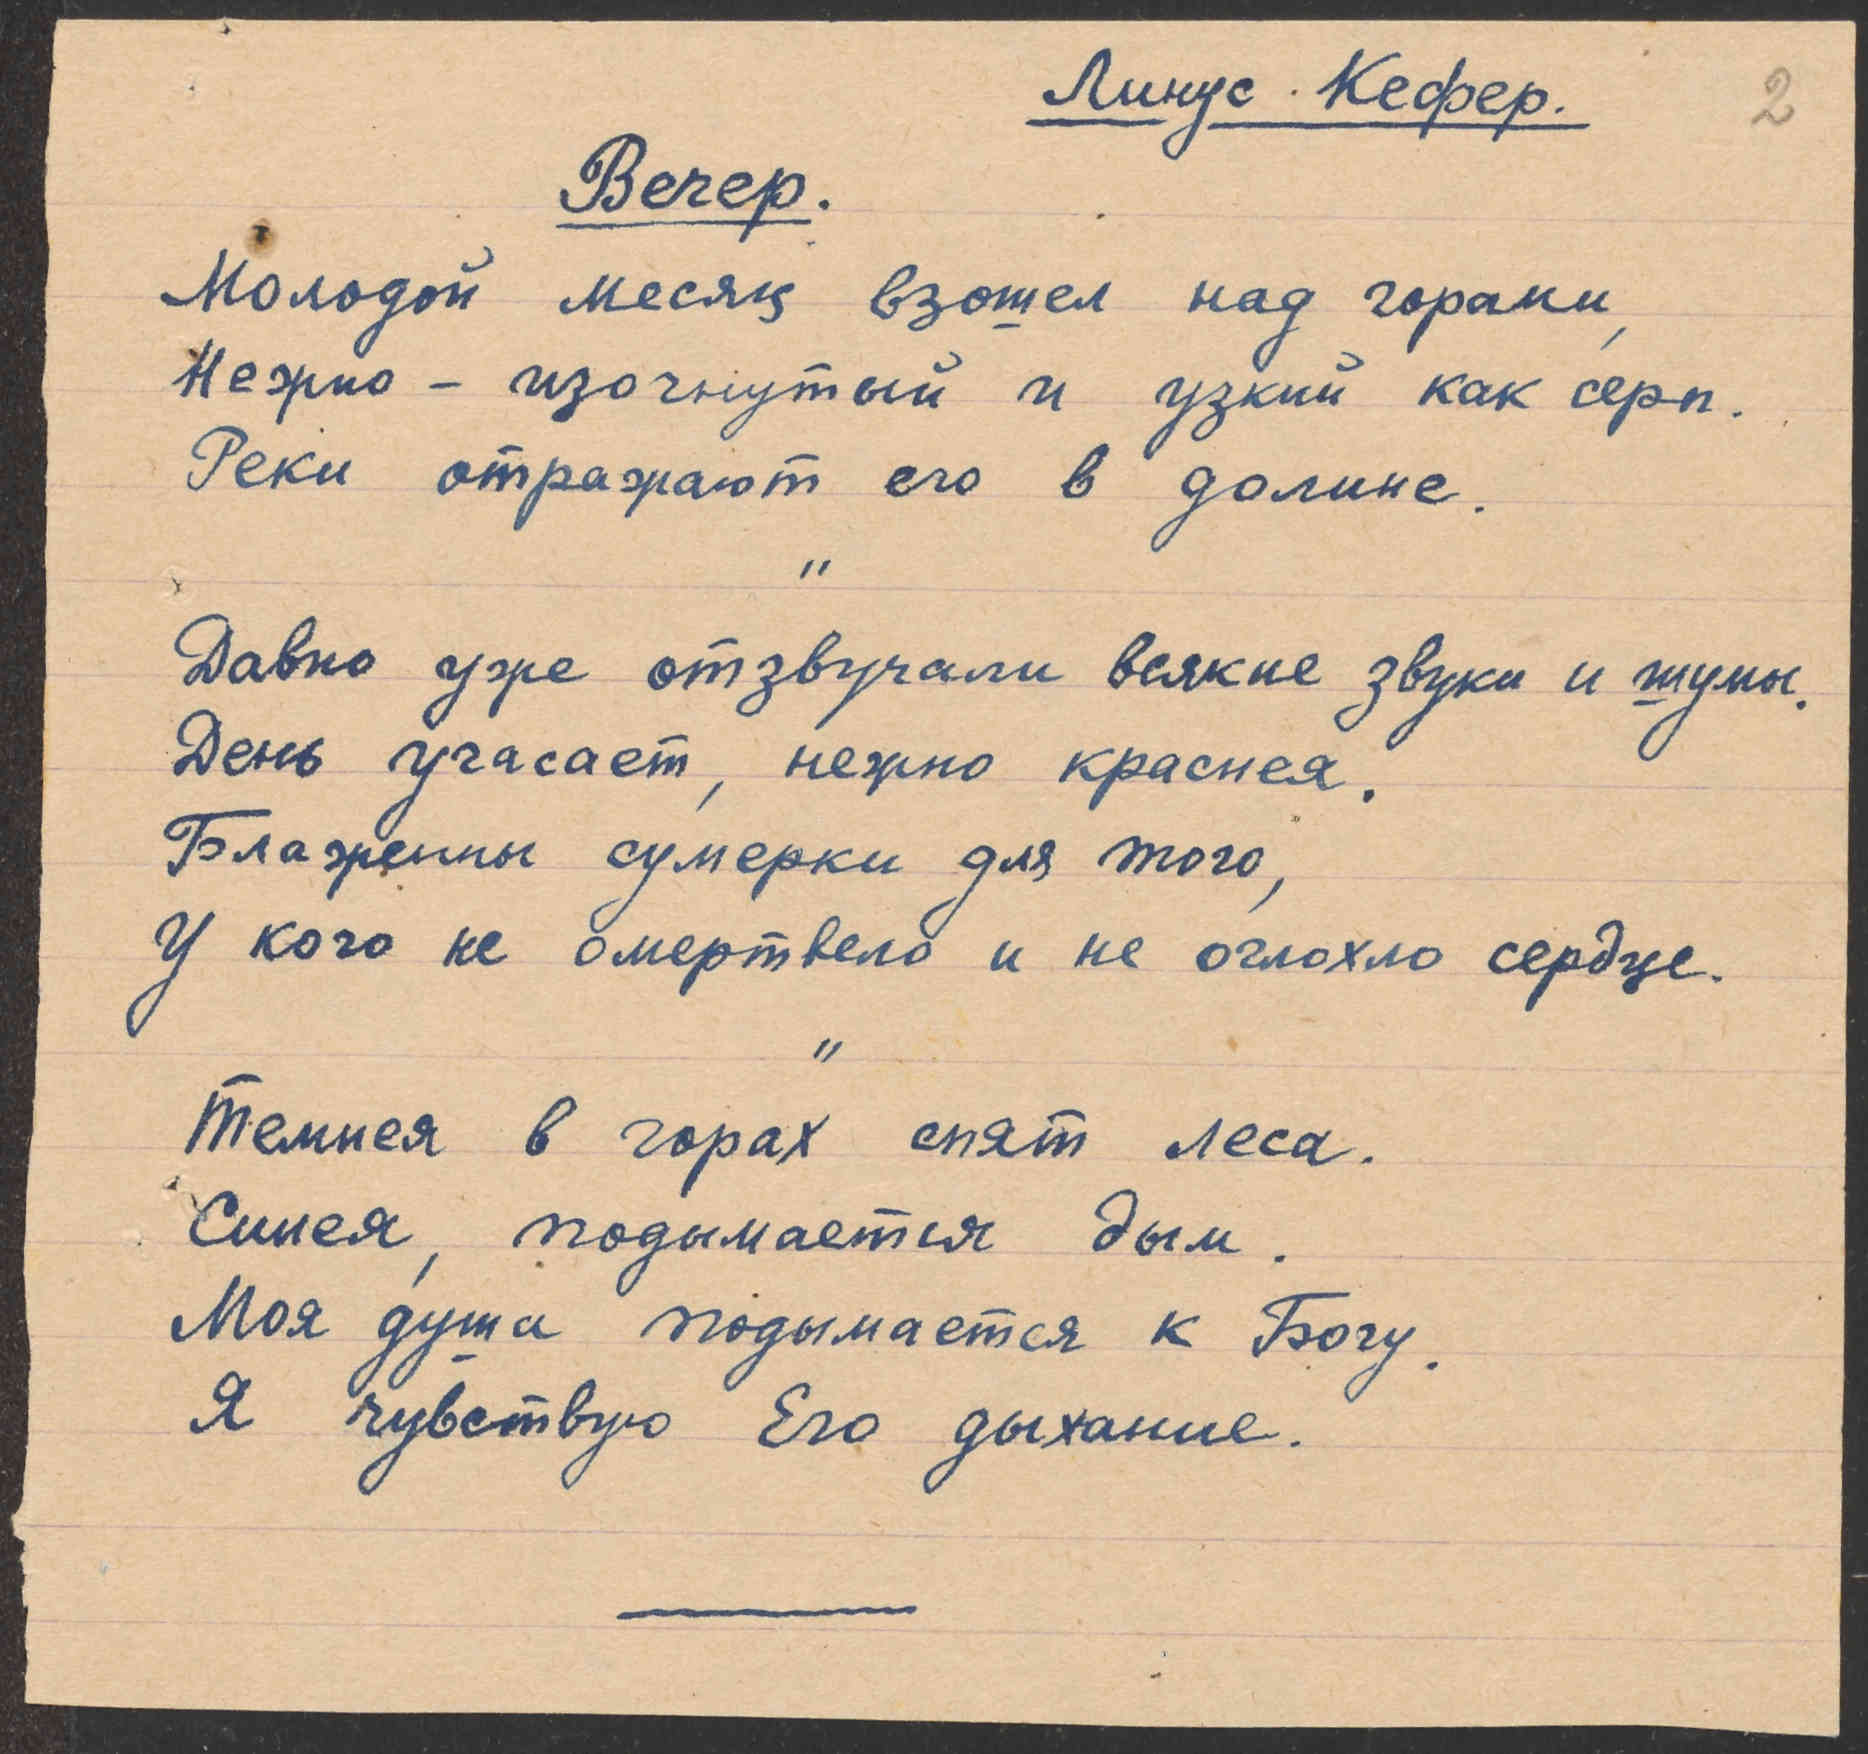 Линус Кефер.
2
Вечер.
Молодой месяц взошел над горами,
Нежно - изогнутый и узкий как серп.
Реки отражают его в долине.
"
Давно уже отзвучали всякие звуки и шумы.
День угасает, нежно краснея.
Блаженны сумерки для того,
У кого не омертвело и не оглохло сердце.
"
Темнея в горах спят леса.
Синея, подымается дым.
Моя душа подымается к Богу.
Я чувствую Его дыхание.